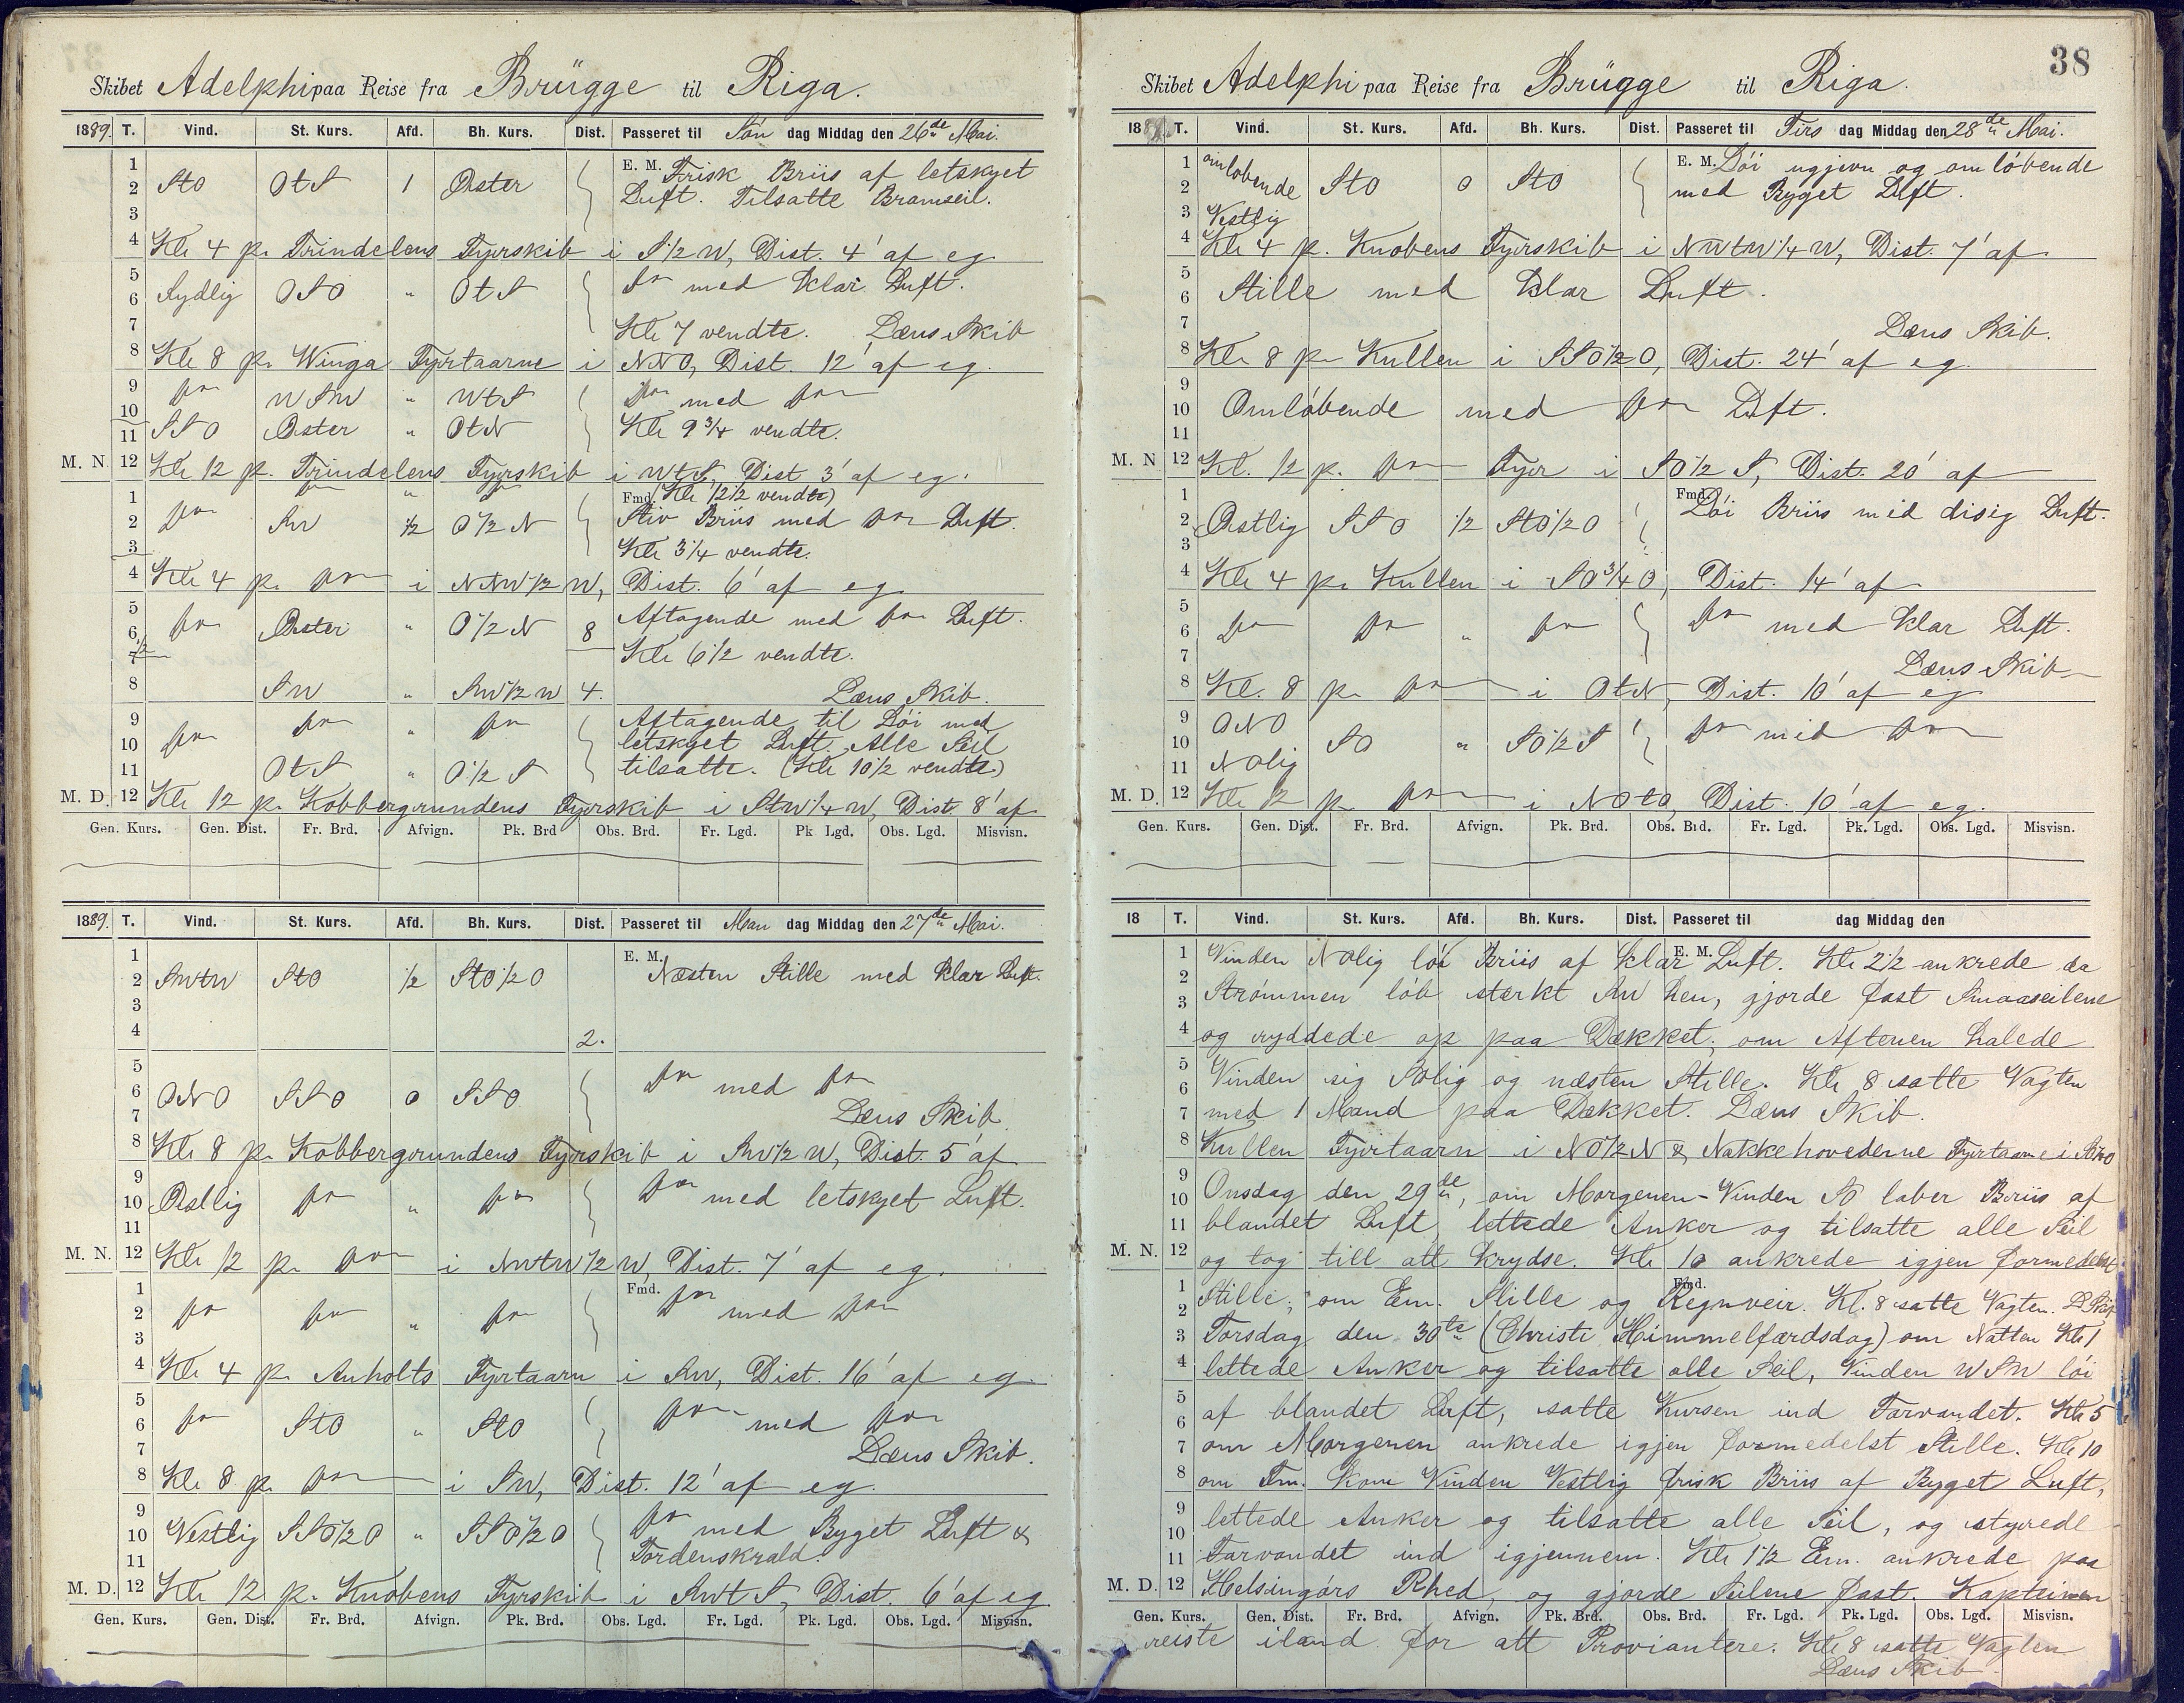 Skibet Adelphi paa Reise fra Brügge til Riga.
1889. T. Vind. St. Kurs. Afd. Bh. Kurs. Dist. Passeret til Søn dag Middag den 26de Mai.
1 E. M. Frisk Briis af letskyet
2 StO OtS 1 Øster Luft. Tilsatte Bramseil.
3
4 Kle 4 p. Trindelens Fyrskib i S 1/2 W, Dist. 4' af eg
5 do med klar Luft.
6 Sydlig OSO " OtS
7 Kle 7 vendte. Læns Skib
8 Kle 8 p. Winga Fyrtaarne i NNO, Dist. 12' af eg.
9 do WSW " WtS do med do
10
11 SSO Øster " OtN Kle 9 3/4 vendte.
M. N. 12 Kle 12 p. Trindelens Fyrskib i WtS, Dist 3' af eg.
1 do " do Fmd. (Kle 12 1/2 vendte)
2 do SW 1/2 O 1/2 N Stiv Briis med do Luft.
3 Kle 3 1/4 vendte.
4 Kle 4 p. do i NtW 1/2 W, Dist. 6' af eg
5 Aftagende med do Luft.
6 do Øster " O 1/2 N 8
1/2
7 Kle 6 1/2 vendte.
8 SW " SW 1/2 W 4. Læns Skib.
9 do " do Aftagende til Løi med
10 do letskyet Luft. Alle Seil
11 OtS " O 1/2 S tilsatte. (Kle 10 1/2 vendte.)
M. D. 12 Kle 12 p. Kobbergrundens Fyrskib i StW 1/4 W, Dist. 8' af
Gen. Kurs. Gen. Dist. Fr. Brd. Afvign. Pk. Brd Obs. Brd. Fr. Lgd. Pk Lgd. Obs. Lgd. Misvisn.
1889. T. Vind. St. Kurs. Afd. Bh. Kurs. Dist. Passeret til Man dag Middag den 27de Mai.
1 E. M.
2 SWtW StO 1/2 StO 1/2 O Næsten Stille med klar Luft.
3
4 2.
5
6 ONO SSO 0 SSO do med do
7 Læns Skib.
8 Kle 8 p. Kobbergrundens Fyrskib i SW 1/2 W, Dist. 5' af
9
10 Østlig do " do do med letskyet Luft.
11
M. N. 12 Kle 12 p. do i NWtW 1/2 W, Dist. 7' af eg.
1 Fmd.
2 do do " do do med do
3
4 Kle 4 p. Anholts Fyrtaarn i SW, Dist. 16' af eg.
5
6 do StO " StO do med do
7 Læns Skib.
8 Kle 8 p. do i SW, Dist. 12' af eg.
9
10 Vestlig SSO 1/2 O " SSO 1/2 O do med Byget Luft &
11 Tordenskrald.
M. D. 12 Kle 12 p. Knobens Fyrskib i SWtS, Dist. 6' af eg
Gen. Kurs. Gen. Dist. Fr. Brd. Afvign. Pk. Brd. Obs. Lgd. Fr. Lgd. Pk. Lgd. Obs. Lgd. Misvisn.
38
Skibet Adelphi paa Reise fra Brügge til Riga.
1889. T. Vind. St. Kurs. Afd. Bh. Kurs. Dist. Passeret til Tirs dag Middag den 28de Mai.
1 omløbende E. M. Løi ugjevn og omløbende
2 StO 0 StO med Byget Luft.
3 Vestlig
4 Kle 4 p. Knobens Fyrskib i NWtW 1/4 W, Dist. 7' af
5
6 Stille med klar Luft.
7 Læns Skib.
8 Kle 8 p. Kullen i SSO 1/2 O, Dist. 24' af eg.
9
10 Omløbende med do Luft.
11
M. N 12 Kl. 12 p. do Fyr i SO 1/2 S, Dist. 20' af
1 Fmd. Løi Briis med disig Luft.
2 Østlig SSO 1/2 StO 1/2 O
3
4 Kle 4 p. Kullen i SO 3/4 O, Dist. 14' af
5
6 do do " do do med klar Luft.
7 Læns Skib
8 Kl. 8 p. do i OtN, Dist. 10' af eg
9 ONO
10 SO " SO 1/2 S do med do
11 NOlig
M. D. 12 Kle 12 p. do i NOtO, Dist. 10' af eg.
Gen. Kurs. Gen. Dist. Fr. Brd. Afvign. Pk. Brd. Obs. Brd. Fr. Lgd. Pk. Lgd. Obs. Lgd. Misvisn.
18 T. Vind. St. Kurs. Afd. Bh. Kurs. Dist. Passeret til dag Middag den
1 Vinden NOlig løi Briis af klar E. M. Luft. Kle 2 1/2 ankrede da
2
3 Strømmen løb stærkt SW hen, gjorde fast Smaaseilene
4 og ryddede op paa Dækket; om Aftenen halede
5
6 Vinden sig SOlig og næsten Stille. Kle 8 satte Vagten
7 med 1 Mand paa Dækket. Læns Skib.
8 Kullen Fyrtaarn i NO 1/2 N & Nakkehovederne Fyrtaarne i
9
10 Onsdag den 29de, om Morgenen - Vinden SO laber Briis af
11 blandet Luft, lettede Anker og tilsatte alle Seil
M. N. 12 og tog till att krydse. Kle 10 ankrede igjen formedelst
1 Fmd.
2 Stille; om Em. Stille og Regnveir. Kl. 8 satte Vagten. L Skib
3 Torsdag den 30te (Christi Himmelfærdsdag) om Natten Kle 1
4 lettede Anker og tilsatte alle Seil, Vinden WSW løi
5
6 af blandet Luft, satte Kursen ind Farvandet. Kle 5
7 om Morgenen ankrede igjen formedelst Stille. Kle 10
8 om Fm. kom Vinden Vestlig frisk Briis af Byget Luft,
9
10 lettede Anker og tilsatte alle Seil, og styrede
11 Farvandet ind igjennem. Kle 1 1/2 Em. ankrede paa
M. D. 12 Helsingørs Rhed, og gjorde Seilene fast. Kapteinen
Gen. Kurs. Gen. Dist. Fr. Brd. Afvign. Pk. Brd. Obs. Brd. Fr. Lgd. Pk. Lgd. Obs. Lgd. Misvisn.
reiste iland for att Proviantere. Kle 8 satte Vagten
Læns Skib.